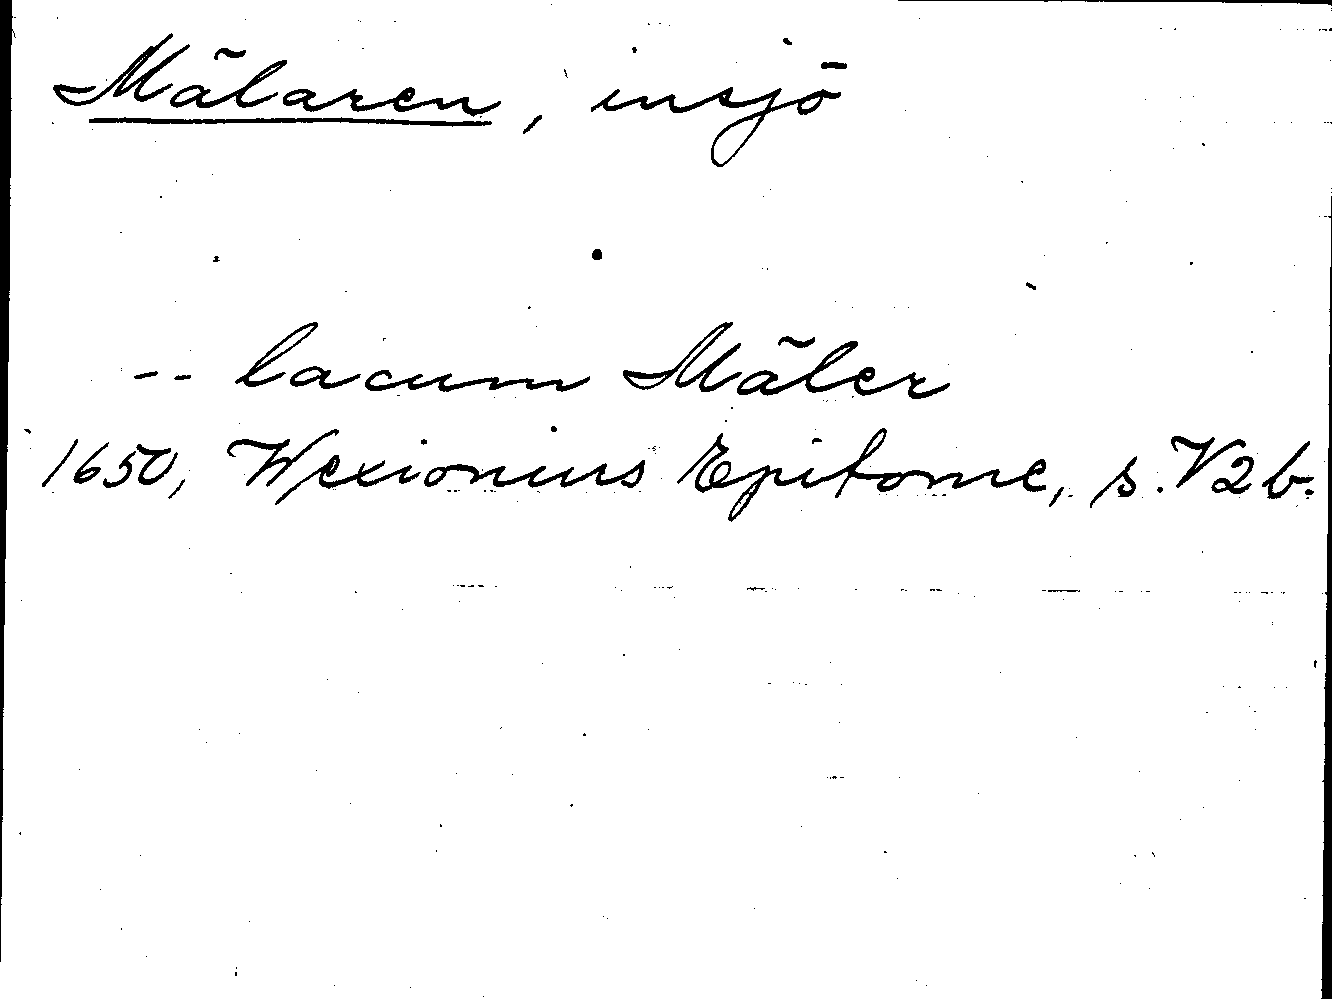 Mälaren, insjö
-- lacum Mäler
1650, Wexionius Epitome, s. V2b.